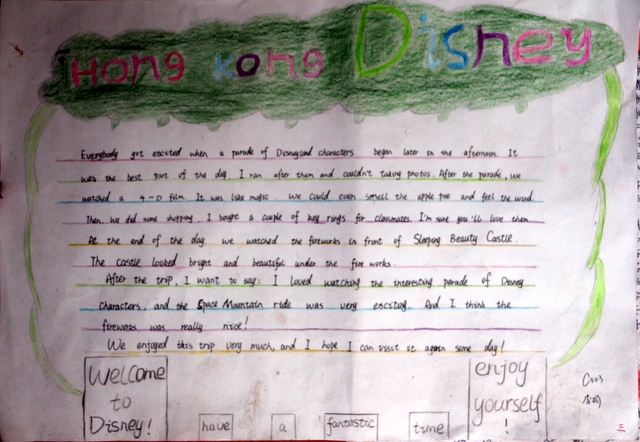 Hong Kong Disney
Everybody got excited when a parade of Disneyland characters began later in the afternoon. It
was the best part of the day. I ran after them and couldn't taking photos. After the parade, we
watched a 4-D film. It was like magic. We could even smell the apple pie and feel the wind.
Then we did some shopping. I bought a couple of key rings for classmates. I'm sure you'll love them
At the end of the day, we watched the fireworks in front of Sleeping Beauty Castle.
The castle looked bright and beautiful under the fire works.
After the trip, I want to say: I loved watching the interesting parade of Disney
characters, and the Space Mountain ride was very exciting. And I think the
fireworks was really nice!
We enjoyed this trip very much, and I hope I can visit it again some day!
Welcome
to
Disney!
have a fantastic time
enjoy
yourself
!
三